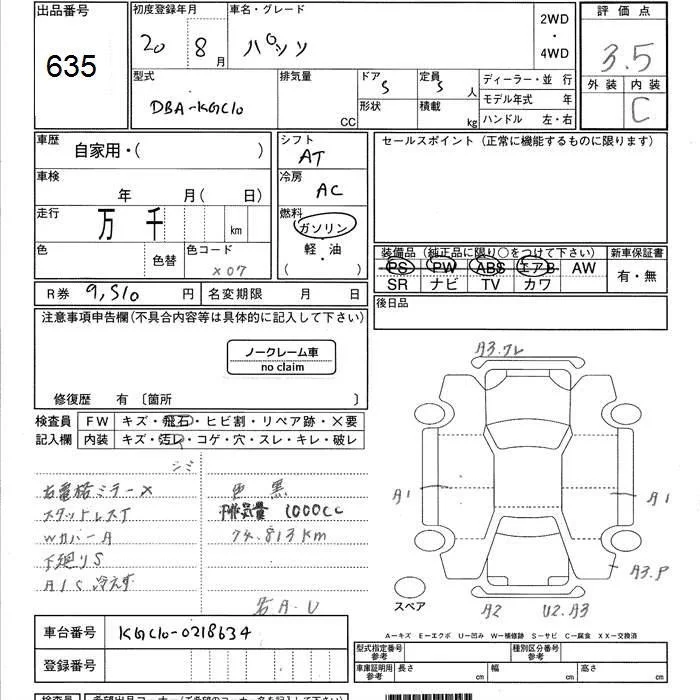 出品番号
635
初度登録年月
20 8月
車名・グレード
パッソ
2WD
・
4WD
評価点
3.5
外装 内装
C
型式
DBA-KGC10
排気量
CC
ドア
5
定員
5人
形状
積載
kg
ディーラー・並 行
モデル年式 年
ハンドル 左・右
車歴
自家用・( )
車検
年 月( 日)
走行
万 千 km
色
色替
色コード
X07
シフト
AT
冷房
AC
燃料
ガソリン
・
軽・油
( )
セールスポイント (正常に機能するものに限ります)
装備品 (純正品に限り○をつけて下さい)
PS PW ABS エアB AW
SR ナビ TV カワ
新車保証書
有・無
R券 9,510 円
名変期限 月 日
後日品
注意事項申告欄(不具合内容等は具体的に記入して下さい)
ノークレーム車
no claim
修復歴 有 〔箇所 〕
検査員
記入欄
FW キズ・飛石・ヒビ割・リペア跡・×要
内装 キズ・汚レ・コゲ・穴・スレ・キレ・破レ
シミ
右電格ミラー×
スタットレスT
WカバーA
下廻りS
A/C 冷えず
色 黒
排気量 1000cc
74.813km
右A.U
A3.ワレ
A1
A1
A3.P
A2
U2.A3
スペア
A−キズ E−エクボ U−凹み W−補修跡 S−サビ C−腐食 XX−交換済
車台番号
KGC10-0218634
登録番号
型式指定番号
参考
種別区分番号
参考
車庫証明用
参考
長さ cm
幅 cm
高さ cm
検査員
希望出品コーナー